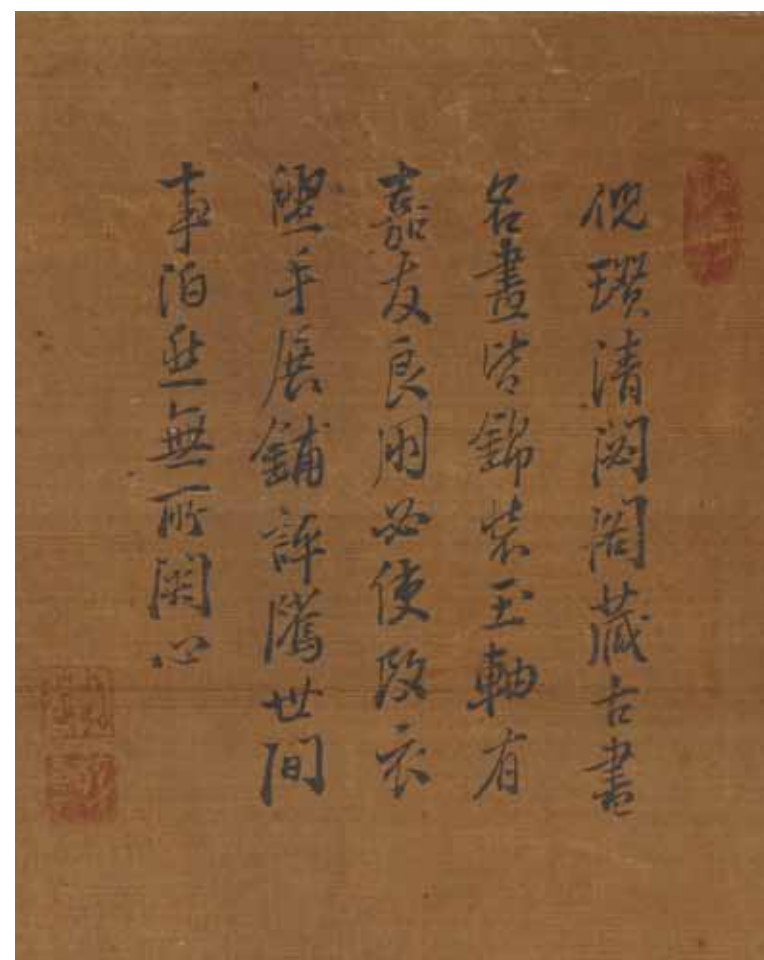 倪瓚清閟閣藏古書
名畫皆錦裝玉軸有
嘉友良朋必使改衣
盥手展鋪評隲世間
事泊然無所関心